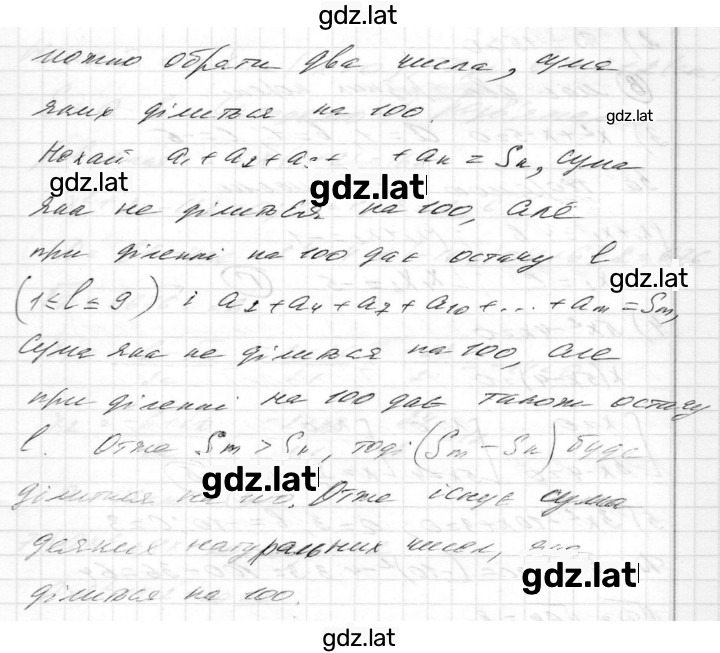 gdz.lat
можно обрати два числа, сума
яких ділиться на 100.
gdz.lat
Нехай a₁ + a₂ + a₃ + + aₙ = Sₙ, сума
gdz.lat
gdz.lat
яка не ділиться на 100, але
при діленні на 100 дає остачу l
gdz.lat
(1 ≤ l ≤ 9) і a₂ + a₄ + a₇ + a₁₀ + ... + aₘ = Sₘ,
сума яка не ділиться на 100, але
при діленні на 100 дає також остачу
l. Отже Sₘ > Sₙ, тоді (Sₘ − Sₙ) буде
gdz.lat
ділиться на 100. Отже існує сума
деяких натуральних чисел,
gdz.lat
ділиться на 100.
gdz.lat